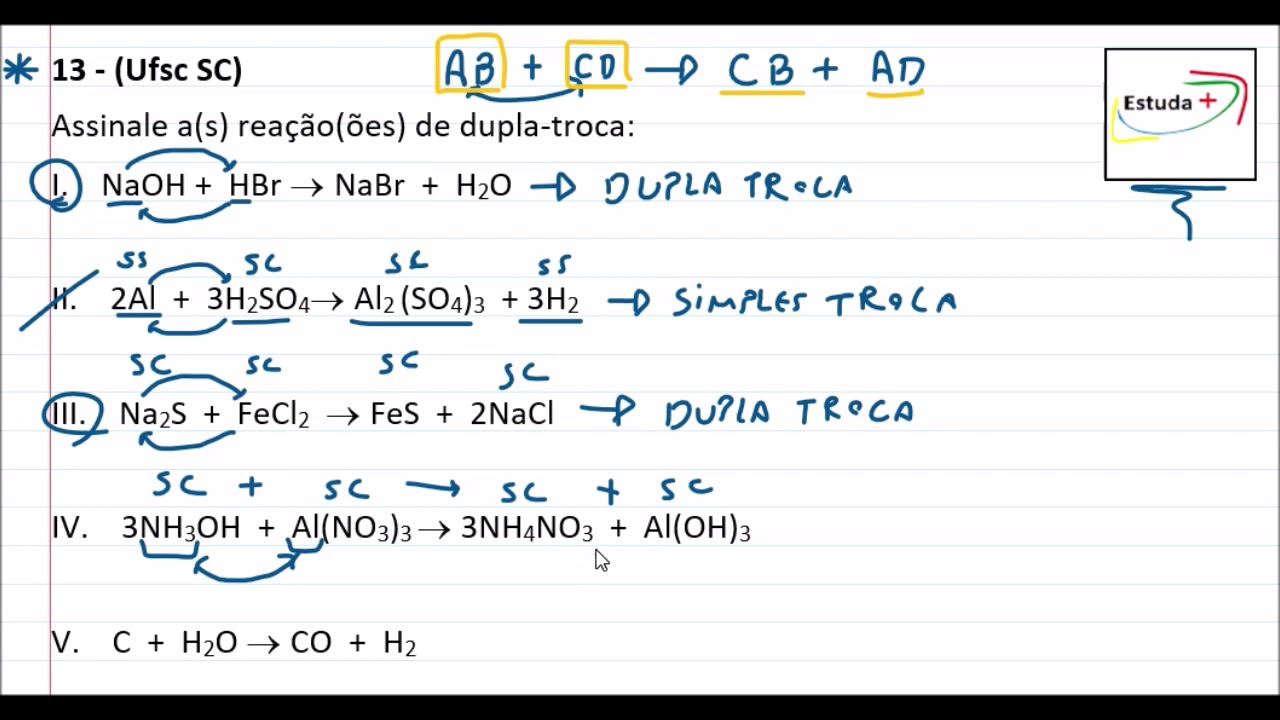 * 13 - (Ufsc SC) AB + CD → CB + AD
Estuda +
Assinale a(s) reação(ões) de dupla-troca:
I. NaOH + HBr → NaBr + H₂O → DUPLA TROCA
SS SC SC SS
II. 2Al + 3H₂SO₄→ Al₂ (SO₄)₃ + 3H₂ → SIMPLES TROCA
SC SC SC SC
III. Na₂S + FeCl₂ → FeS + 2NaCl → DUPLA TROCA
SC + SC → SC + SC
IV. 3NH₃OH + Al(NO₃)₃ → 3NH₄NO₃ + Al(OH)₃
V. C + H₂O → CO + H₂